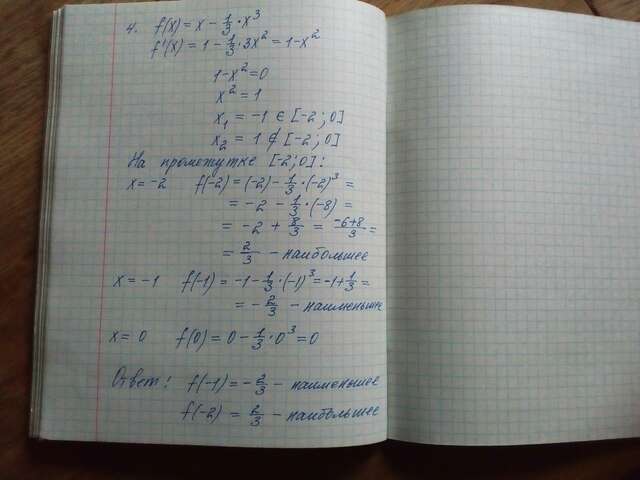 4. f(x) = x - 1/3 · x³
f'(x) = 1 - 1/3 · 3x² = 1-x²
1-x² = 0
x² = 1
x₁ = -1 ∈ [-2; 0]
x₂ = 1 ∉ [-2; 0]
На промежутке [-2; 0]:
x = -2 f(-2) = (-2) - 1/3 · (-2)³ =
= -2 - 1/3 · (-8) =
= -2 + 8/3 = -6+8/3 =
= 2/3 - наибольшее
x = -1 f(-1) = -1 - 1/3 · (-1)³ = -1 + 1/3 =
= - 2/3 - наименьшее
x = 0 f(0) = 0 - 1/3 · 0³ = 0
Ответ: f(-1) = - 2/3 - наименьшее
f(-2) = 2/3 - наибольшее